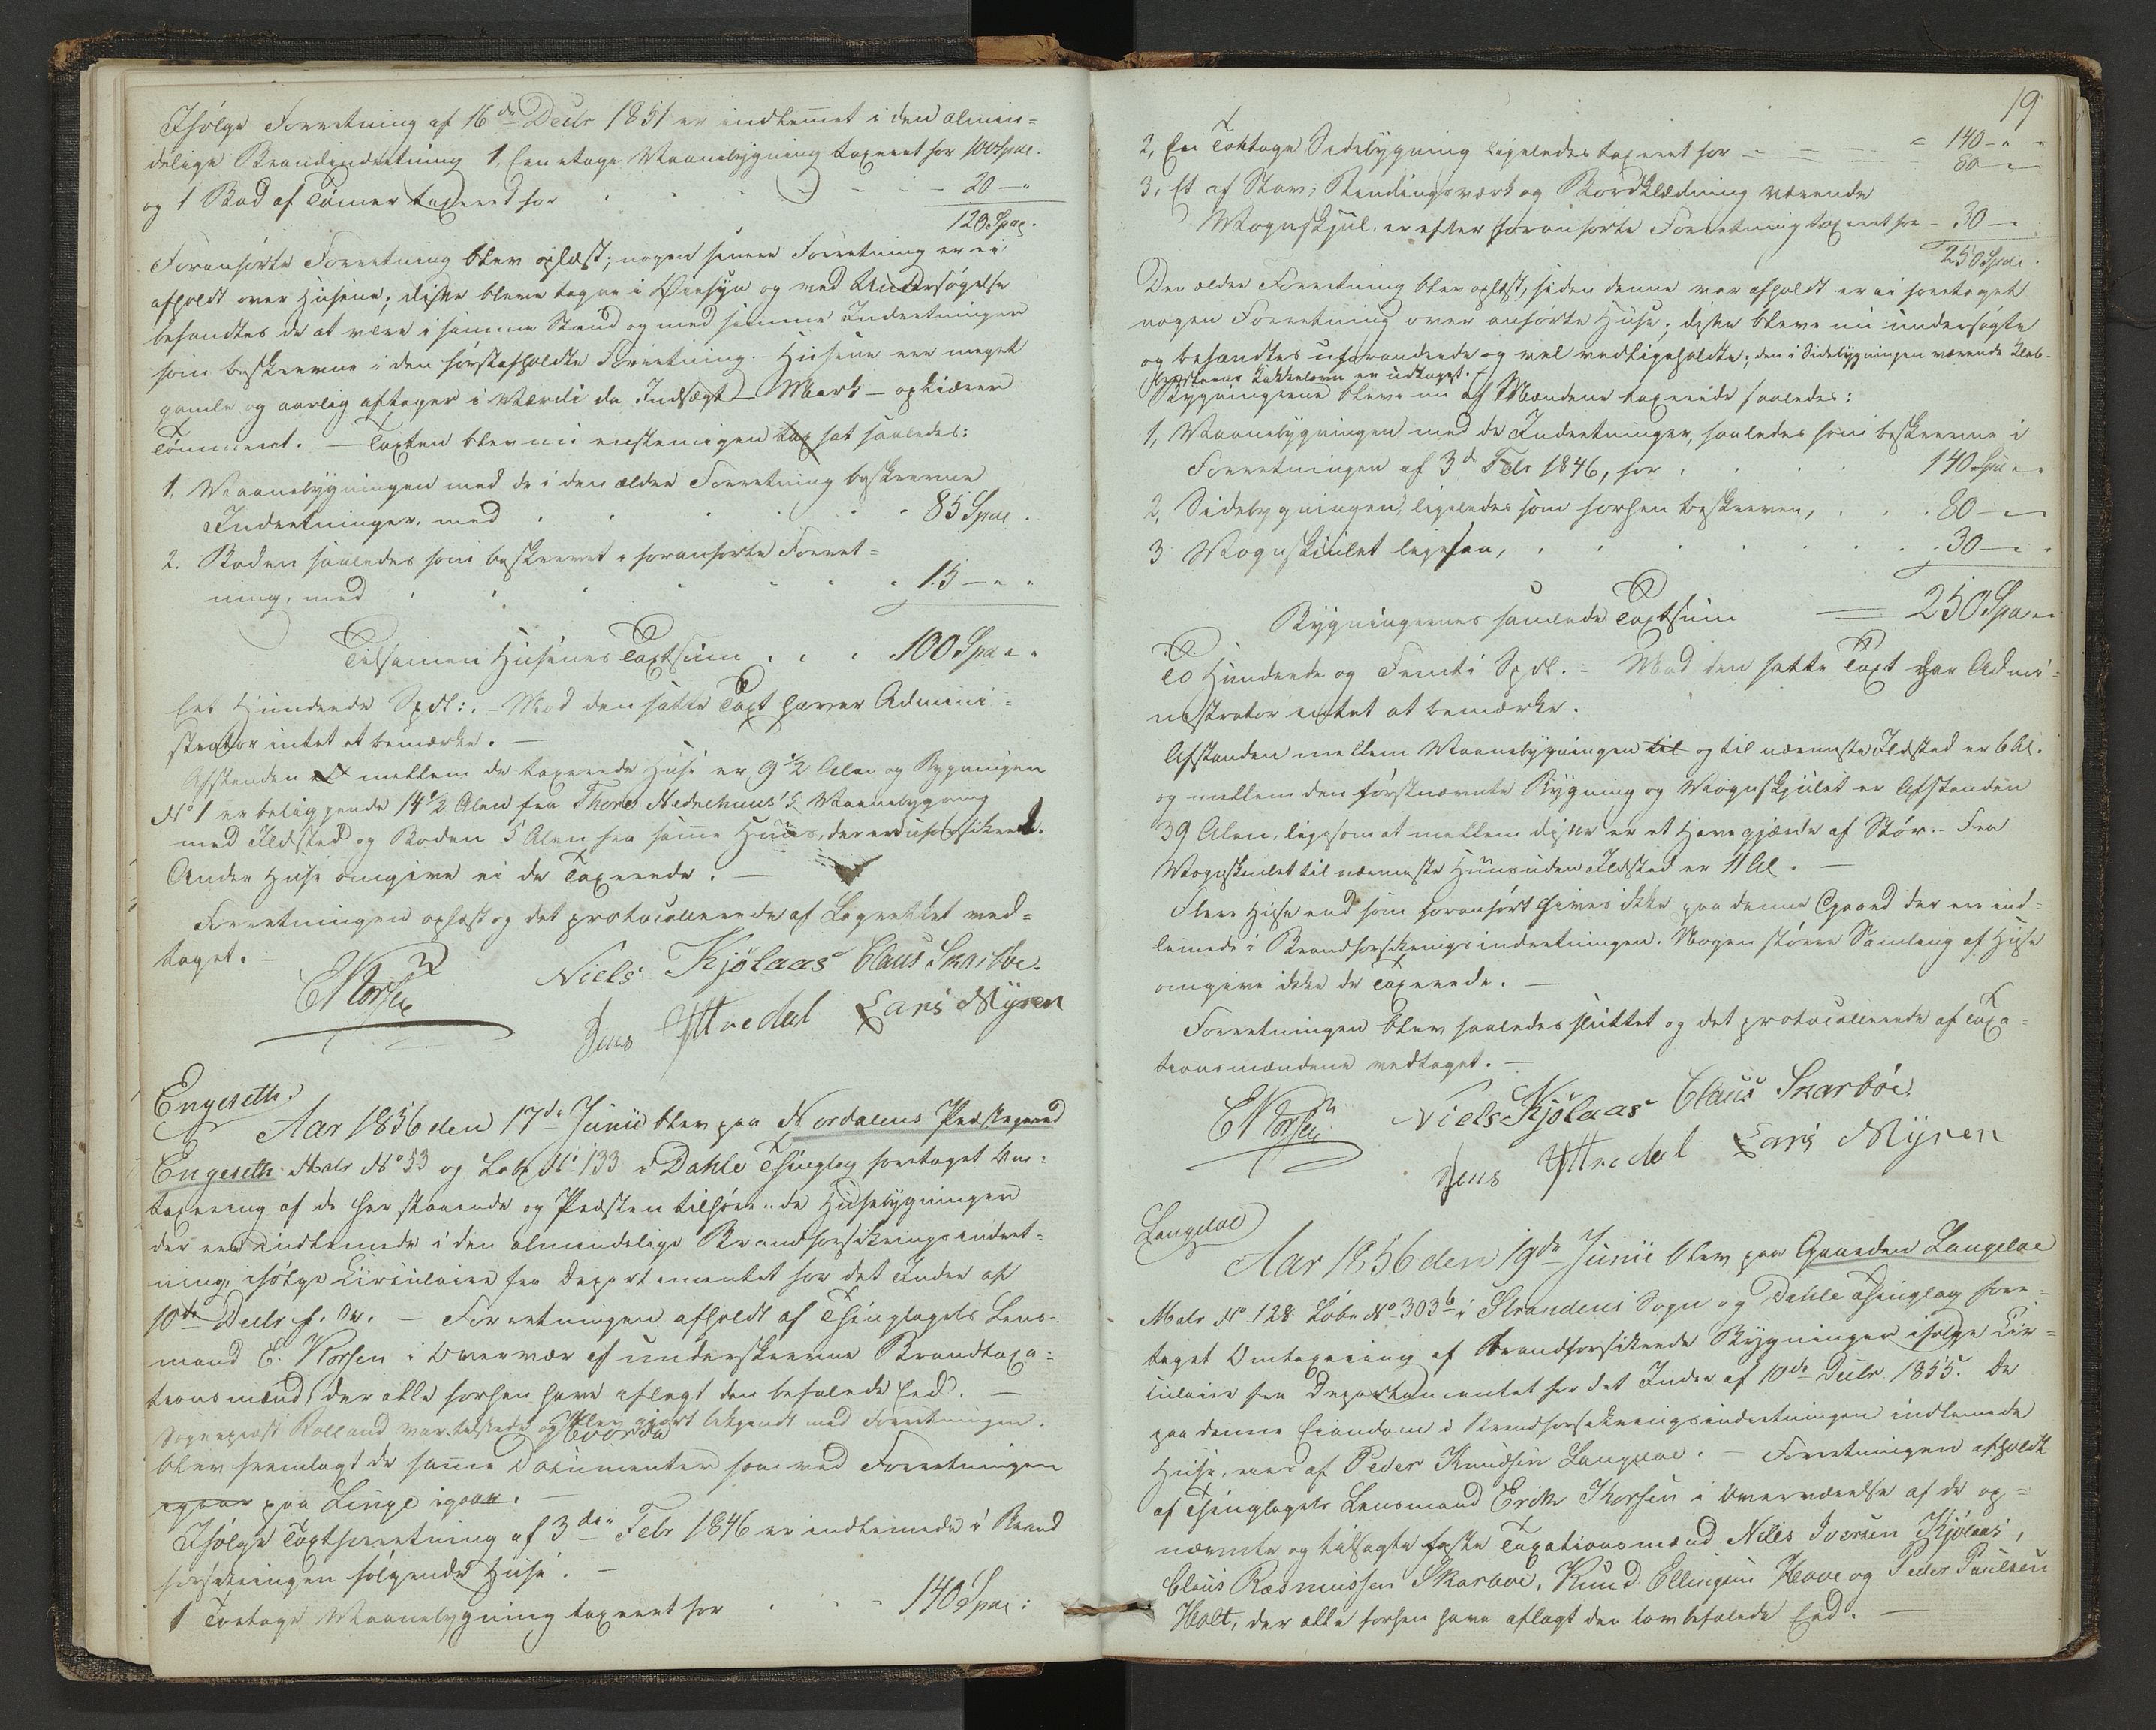 Ifølge Forretning af 16de Decbr 1851 er indlemet i den almin=
delige Brandindretning 1, Een etage Vaanebygning taxeret for 100 Spdl.
og 1 Bod af Tømer taxeret for 20 — "
120 Spdl.
Foranførte Forretning blev oplæst; nogen senere Forretning er ei
afholdt over Husene; disse bleve tagne i Øiesyn og ved Undersøgelse
befandtes de at være i samme Stand og med samme Indretninger
som beskrevne i den førstafholdte Forretning. – Husene ere meget
gamle og aarlig aftager i Værdi da Indsægt – Mark – optærer
Tømmeret. — Taxten blev nu enstemigen tax sat saaledes:
1. Vaanebygningen med de i den ældre Forretning beskrevne
Indretninger, med 85 Spdl.
2. Boden saaledes som beskrevet i foranførte Forret=
ning, med 15 — " "
Tilsamen Husenes Taxtsum . . . 100 Spd " "
Eet Hundrede Spdl:. – Mod den satte Taxt haver Admini=
strator intet at bemærke. —
Afstanden mellem de taxerede Huse er 9 1/2 Alen og Bygningen
No 1 er beliggende 14 1/2 Alen fra Thore Nedrehuus's Vaanebygning
med Ildsted og Boden 5 Alen fra samme Huus, der er uforsikret.
Andre Huse omgive ei de Taxerede. —
Forretningen oplæst og det protocollerede af Lagrettet ved=
taget. —
E Korsen Niels Kjølaas Claus Skarbøe.
Jens Yttredal Lars Myren
Engeseth.
Aar 1856 den 17de Junii blev paa Nordalens Præstegaard
Engeseth Matr No 53 og Løb No 133 i Dahle Thinglag foretaget Om=
taxering af de her staaende og Præsten tilhørende Husebygninger
der ere indlemede i den almindelige Brandforsikringsindret=
ning, ifølge Circulaire fra Departementet for det Indre af
10de Decbr f. A. — Forretningen afholdt af Thinglagets Lens=
mand E. Korsen i Overvær af underskrevne Brandtaxa=
tionsmænd der alle forhen have aflagt den befalede Eed. —
Sognepræst Rolland var tilstede og blev gjort bekjendt med Forretningen.
Hvorpaa
blev fremlagt de samme Documenter som ved Forretningen
igaar paa Linge igaar. —
Ifølge Taxtforretning af 3die Febr 1846 er indlemede i Brand
forsikringen følgende Huse. —
1 Toetage Vaanebygning taxeret for 140 Spdl:
19
2, En Toetages Sidebygning ligeledes taxeret for — — — = 140 — " "
80 — "
3, Et af Stav, Bindingsværk og Bordklædning værende
Vognskjul, er efter foranførte Forretning taxeret for – 30 — "
250 Spdl.
Den ældre Forretning blev oplæst, siden denne var afholdt er ei foretaget
nogen Forretning over anførte Huse; disse bleve nu undersøgte
og befandtes uforandrede og vel vedligeholdte; den i Sidebygningen værende Kleb-
bersteens Kakkelovn er udtaget. –
Bygningerne bleve nu af Mændene taxerede saaledes:
1, Vaanebygningen med de Indretninger, saaledes som beskrevne i
Forretningen af 3de Febr 1846, for 140 Spd " "
2, Sidebygningen, ligeledes som forhen beskreven, . . . 80 — "
3 Vognskiulet ligesaa, . . . 30 — "
Bygningernes samlede Taxtsum = 250 Spd " "
To Hundrede og Femti Spdl. – Mod den satte Taxt har Admi=
nistrator intet at bemærke.
Afstanden mellem Vaanebygningen til og til nærmeste Ildsted er 6 Al.
og mellem den førstnævnte Bygning og Vognskjulet er Afstanden
39 Alen, ligesom at mellem disse er et Havegjærde af Stør. – Fra
Vognskiulet til nærmeste Huus uden Ildsted er 11 Al. —
Flere Huse end som foranført gives ikke paa denne Gaard der ere ind=
lemede i Brandforsikringsindretningen. Nogen større Samling af Huse
omgive ikke de Taxerede. —
Forretningen blev saaledes sluttet og det protocollerede af Taxa=
tionsmændene vedtaget. —
E Korsen Niels Kjølaas Claus Skarbøe.
Jens Yttredal Lars Myren
Langeloe
Aar 1856 den 19de Junii blev paa Gaarden Langeloe
Matr No 128 Løbe No 303b i Strandens Sogn og Dahle Thinglag fore=
taget Omtaxering af brandforsikrede Bygninger ifølge Cir=
culaire fra Departementet for det Indre af 10de Decbr 1855. De
paa denne Eiendom i Brandforsikringsindretningen indlemede
Huse, eies af Peder Knudsen Langeloe. — Forretningen afholdt
af Thinglagets Lensmand Erik Korsen i Overværelse af de op=
nævnte og tilsagte faste Taxationsmænd Niels Iversen Kjølaas,
Claus Rasmussen Skarboe, Knud Ellingsen Hove og Peder Paulsen
Holt, der alle forhen have aflagt den lovbefalede Eed. —